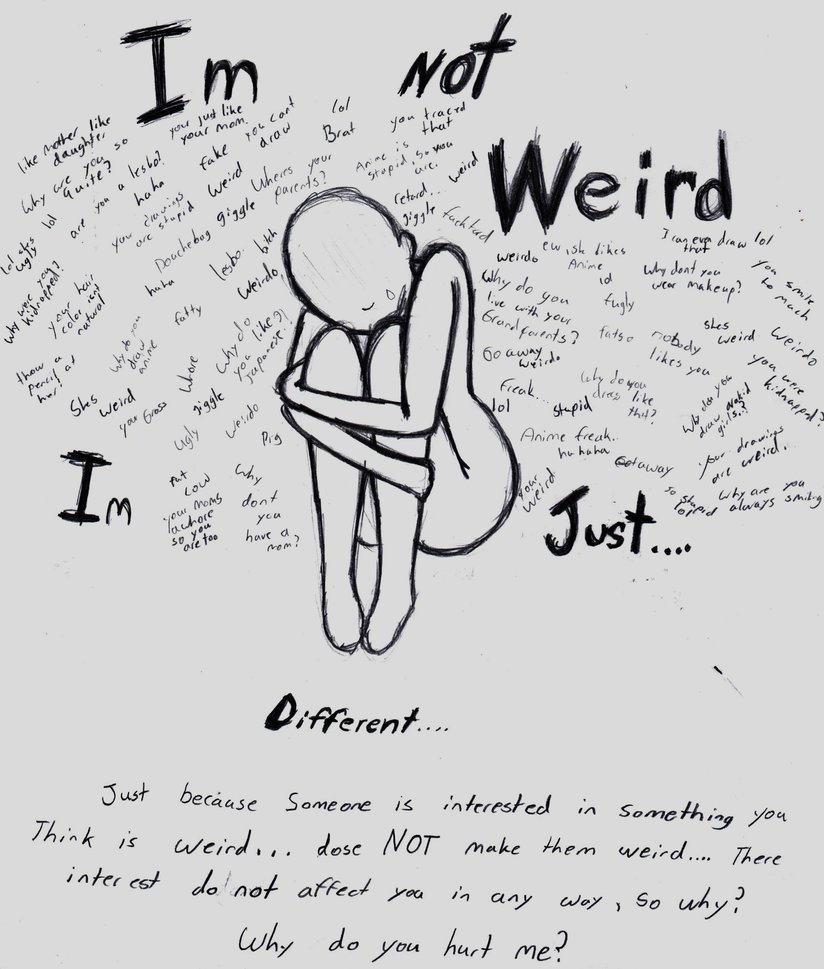 Im NOT
Weird
like mother like
daughter
your just like
your mom.
you cant
draw
lol
Brat
you traced
that
Why are you so
Quite?
are you a lesbo?
haha
fake
Weird
Wheres your
parents?
Anime is
stupid so you
are.
weird
lol shes
ugly
lol
your drawings
are stupid
giggle
retard...
giggle
fucktard
Why were you
kidnapped?
your hair
color isnt
natural
Douchebag
haha
lesbo
bitch
Weirdo
throw a
pencil at
her!
Why do you
draw
anime
fatty
Whore
Why do
you like
Japanese?
Shes weird
your Gross
giggle
Ugly
Weirdo
Pig
fat
cow
your moms
a whore
so you
are too
Why
dont
you
have a
mom?
weirdo
ew, she likes
Anime
lol
I can even draw
that
lol
Why dont you
wear makeup?
you smile
to much
Why do you
live with your
Grandparents?
fugly
fatso
nobody
likes you
shes
weird
Weirdo
Go away
weirdo
Freak...
lol
stupid
Why do you
dress like
that?
Why do you
draw nakid
girls?
you were
kidnapped?
Anime freak..
hahaha
Go away
your drawings
are weird..
your
weird
so stupid
Why are you
always smiling
Im
Just....
Different....
Just because Someone is interested in something you
Think is weird... dose NOT make them weird.... There
interest do not affect you in any way, so why?
Why do you hurt me?